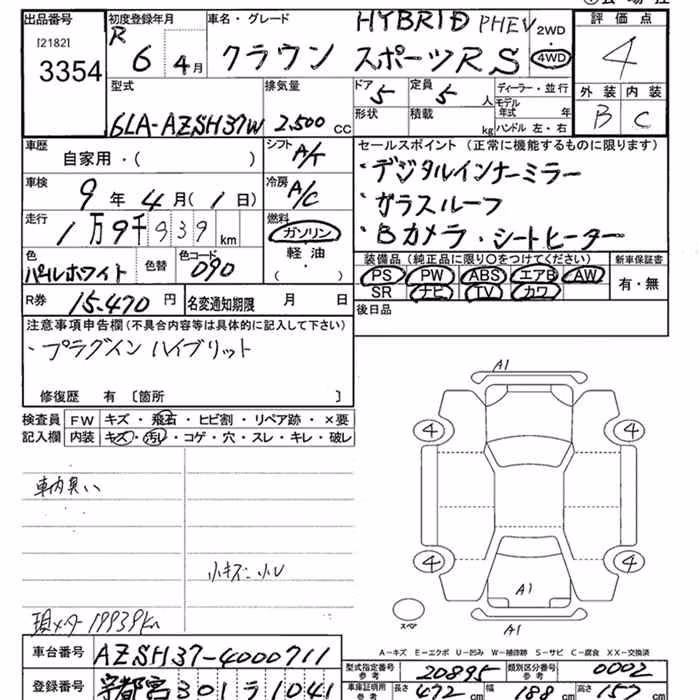 出品番号 初度登録年月 車名・グレード HYBRID PHEV 2WD 評価点
[2182]
3354 R 6 4月 クラウン スポーツRS 4WD 4
型式 排気量 ドア 5 定員 5人 ディーラー・並行 外装 内装
形状 積載 kg モデル年式 年 B C
6LA-AZSH37W 2.500cc ハンドル 左・右
車歴 自家用・( ) シフト A/T セールスポイント (正常に機能するものに限ります)
車検 9年4月(1日) 冷房 A/C ・デジタルインナーミラー
走行 1万9千939km 燃料 ガソリン ・ガラスルーフ
軽油 ・Bカメラ・シートヒーター
色 パールホワイト 色替 色コード 090 ・( ) 装備品 (純正品に限り○をつけてください) 新車保証書
PS PW ABS エアB AW 有・無
R券 15.470円 名変通知期限 月 日 SR ナビ TV カワ
後日品
注意事項申告欄(不具合内容等は具体的に記入して下さい)
・プラグインハイブリット
修復歴 有 〔箇所 〕
検査員 FW キズ・飛石・ヒビ割・リペア跡・×要
記入欄 内装 キズ・汚レ・コゲ・穴・スレ・キレ・破レ
A1
4 4
車内臭い
小キズ・小U
4 4
A1
スペア
A1
現メーター19939km
A-キズ E-エクボ U-凹み W-補修跡 S-サビ C-腐食 XX-交換済
車台番号 AZSH37-4000711
型式指定番号 参考 20895 類別区分番号 参考 0002
登録番号 宇都宮 301 ラ 1041
車庫証明用 参考 長さ 472cm 幅 188cm 高さ 152cm